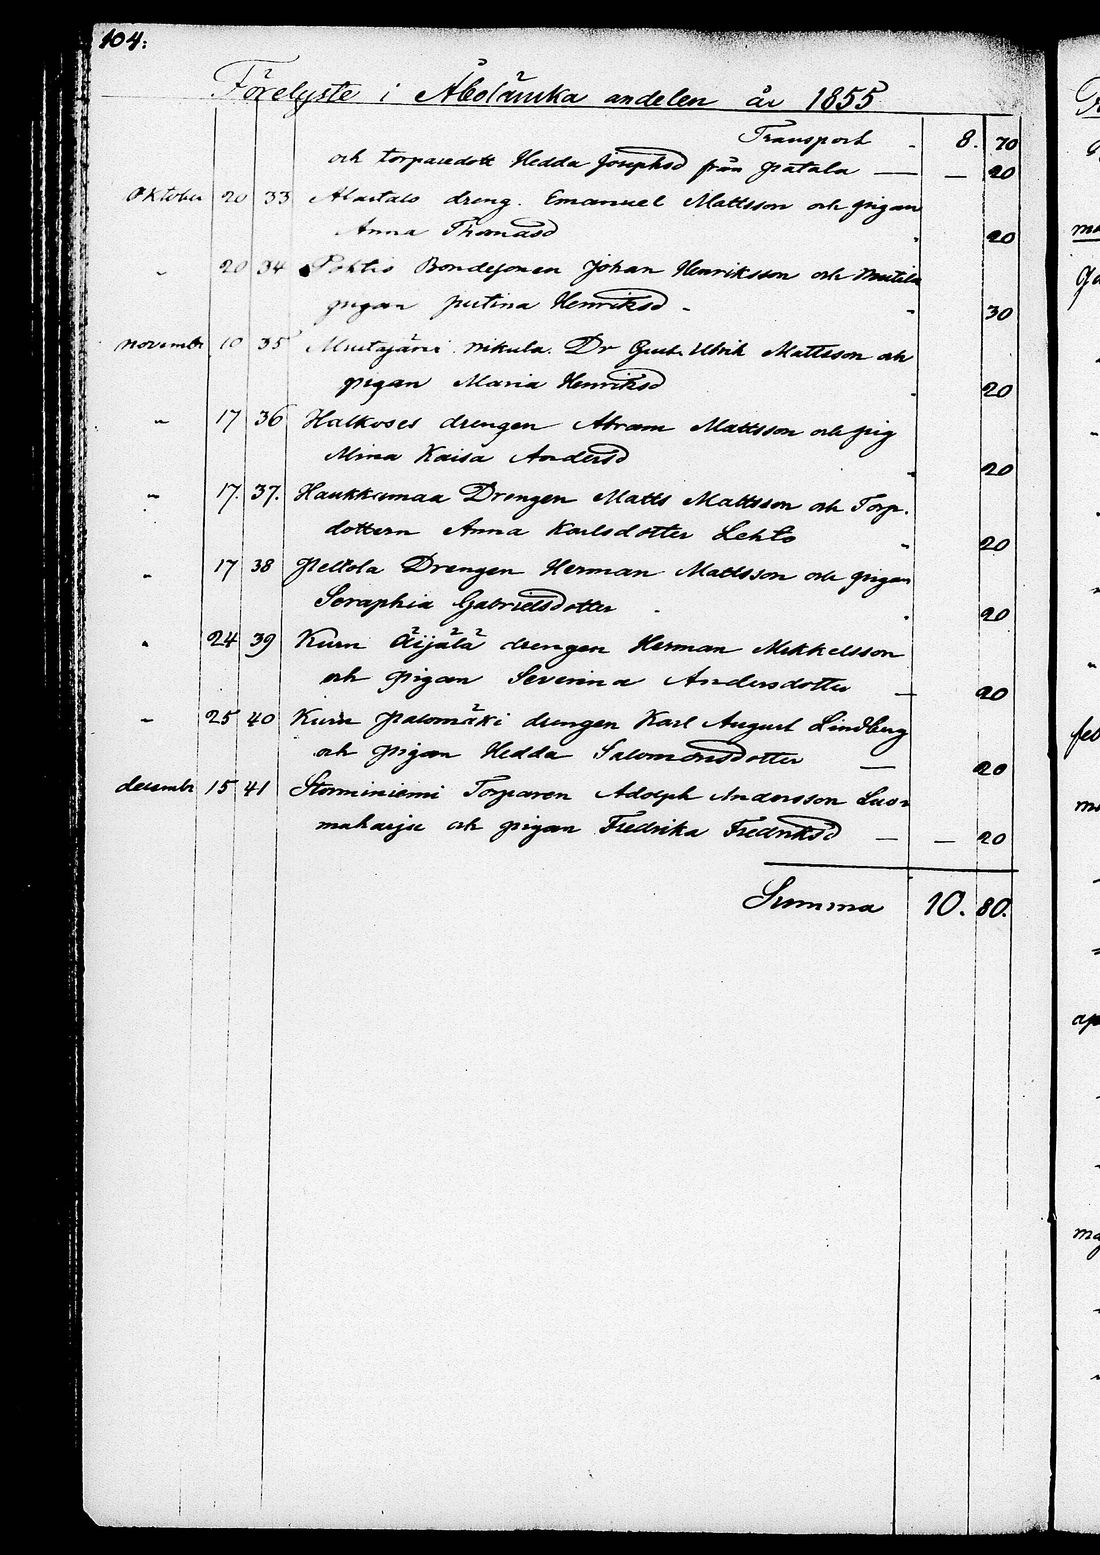 104:
Förelyste i Åbolänska andelen år 1855
Transport - 8. 70
och torparedott Hedda Josephsd från patala — — 20
Oktober 20 33 Alastalo dreng. Emanuel Mattsson och pigan
Anna Thomasd " 20
" 20 34 Bondesonen Johan Henriksson och
pigan justina Henriksd - " 30
novembr 10 35 Mustajärvi nikula. Dr Gust. Ulrik Mattsson och
pigan Maria Henriksd " 20
" 17 36 Halkoses drengen Abram Mattsson och pig
Mina Kaisa Andersd " 20
" 17. 37. Haukkamaa Drengen Matts Mattsson och Torp.
dottern Anna Karlsdotter Lehto " 20
" 17 38 peltola Drengen Herman Mattsson och pigan
Seraphia Gabrielsdotter " 20
" 24 39 Kuru Äijälä drengen Herman Mikkelsson
och pigan Severina Andersdotter — 20
" 25 40 Kuru palomäki drengen Karl August Lindberg
och pigan Hedda Salomonsdotter — 20
decembr 15 41 Storminiemi Torparen Adolph Andersson Luo-
maharju och pigan Fredrika Fredriksd — — 20
Summa 10. 80.